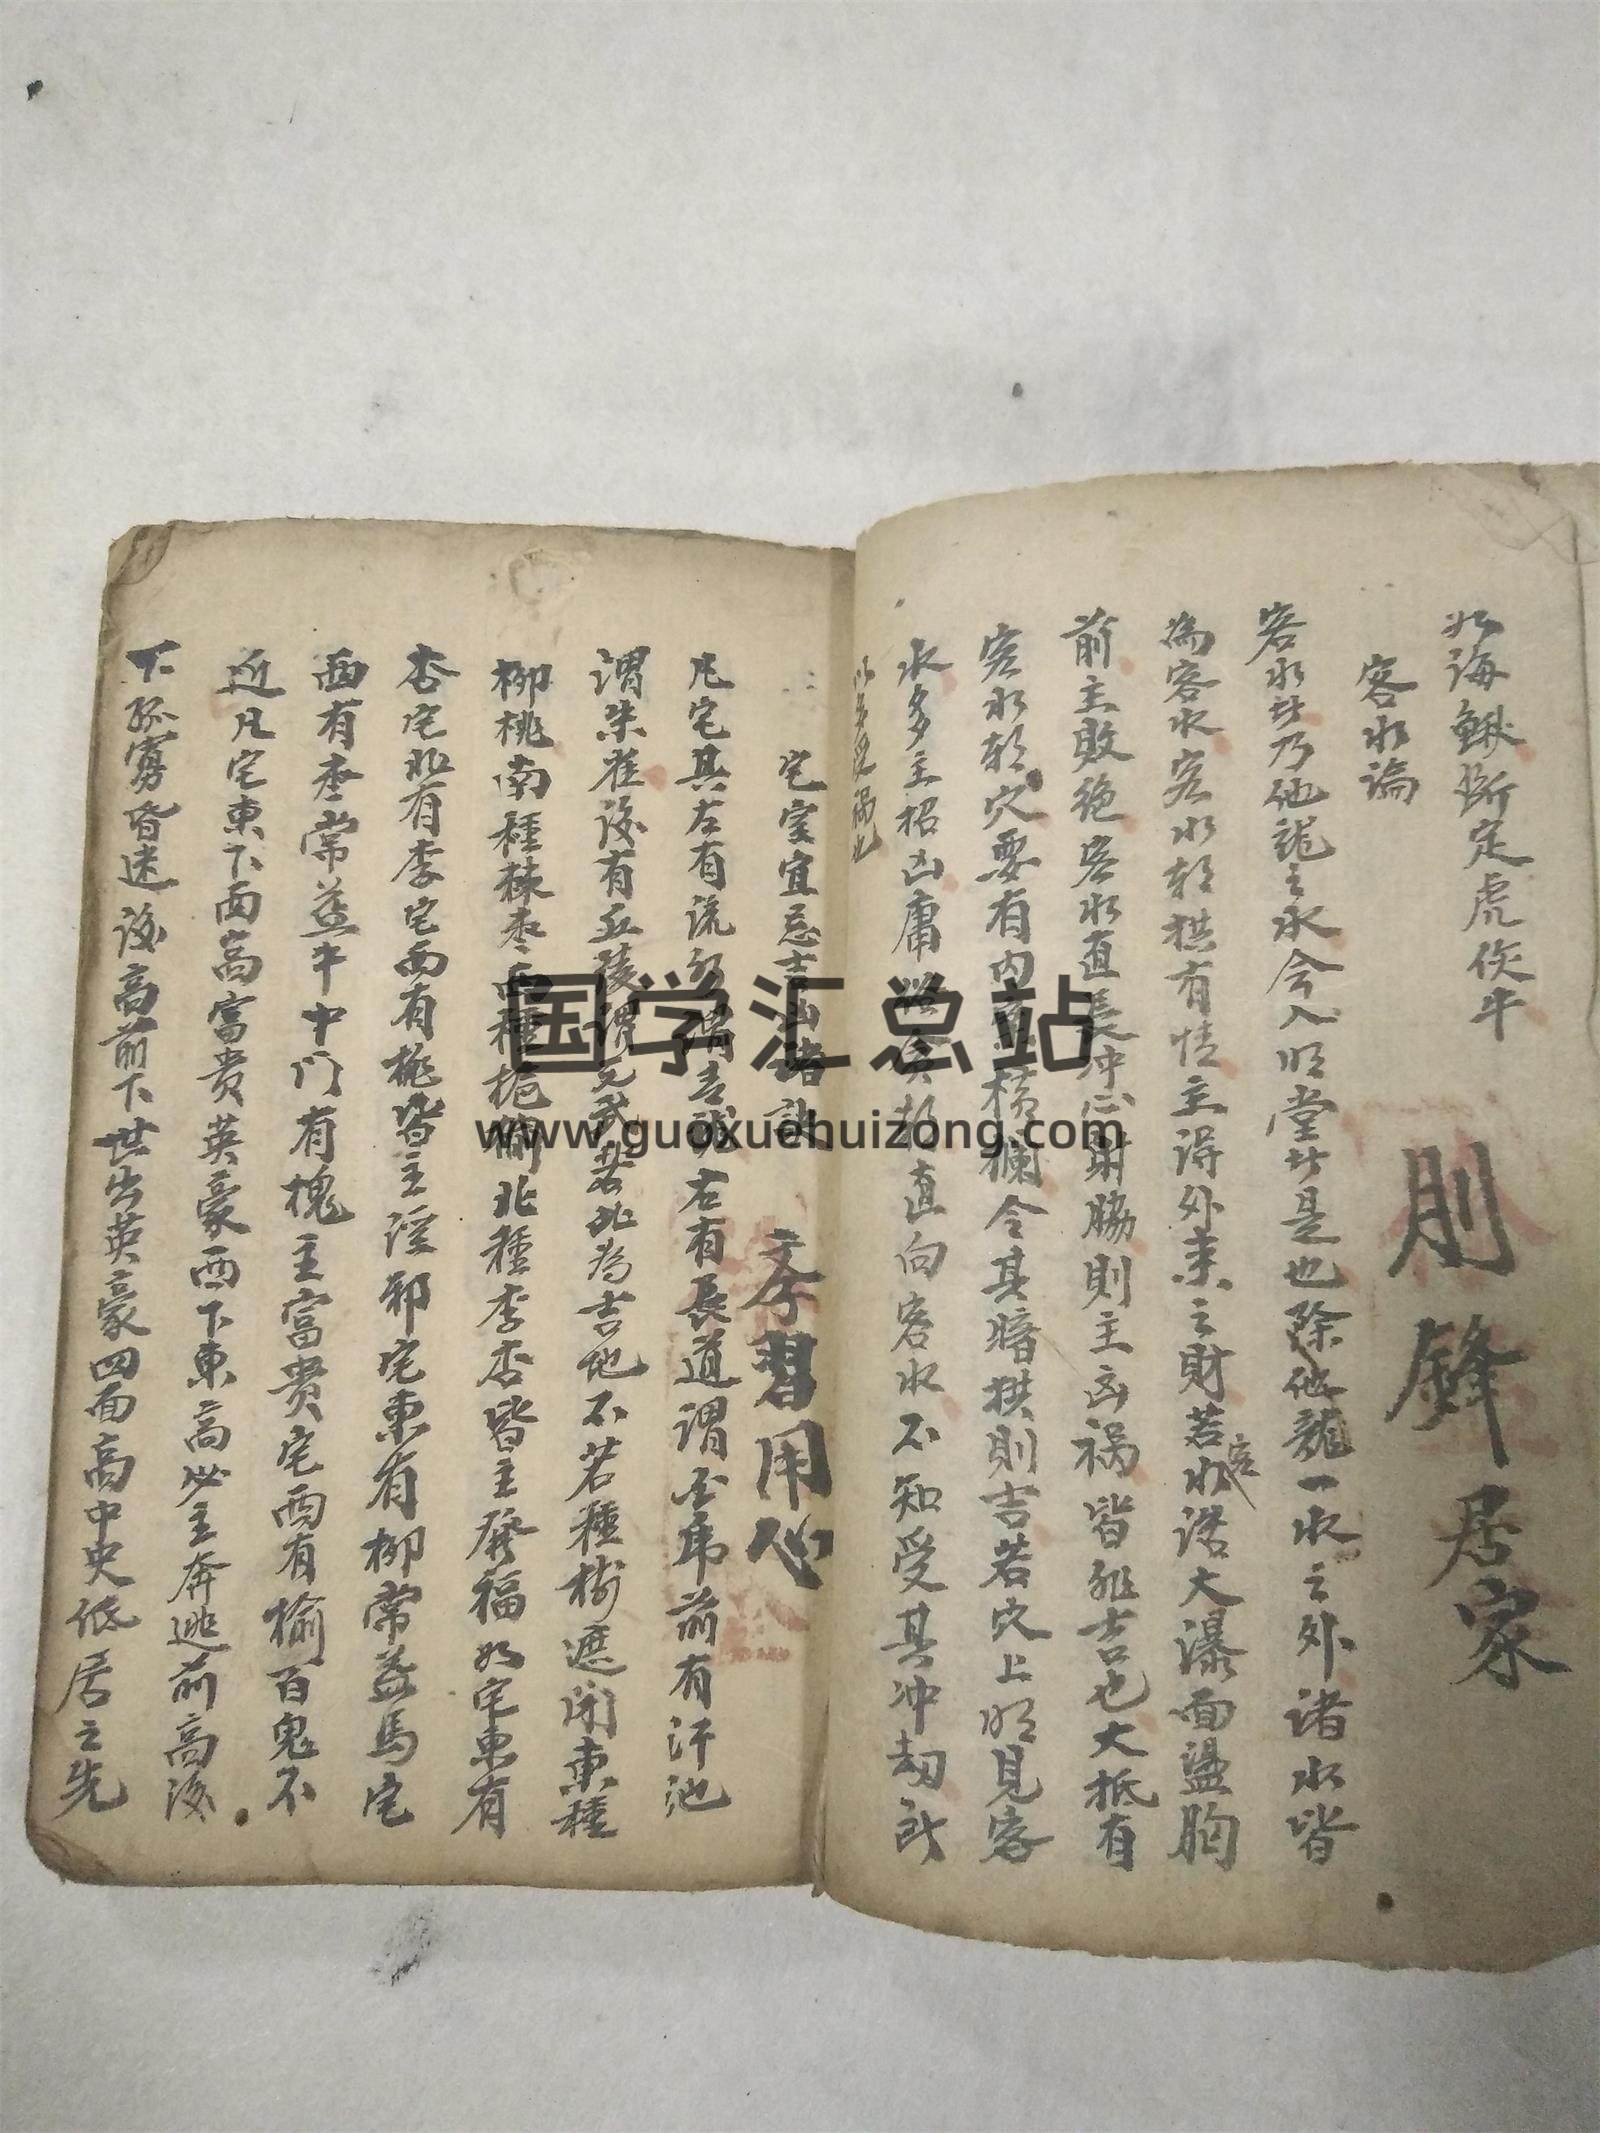 如海鰍斷定虎伩牛
則鋒居家
客水論
客水者乃他龍之水合入明堂者是也除他龍一水之外諸水皆
為客水客水朝拱有情主得外来之財若客水潑大瀑面盪胸
前主敗絶客水直長冲心射脇則主凶禍皆非吉也大抵有
客水朝穴要有内横攔令其暗拱則吉若穴上明見客
水多主招凶庸直向客水不知受其冲刼所
以多受禍也
宅室宜忌吉凶諸訣
李習用心
凡宅其左有流水謂青龍右有長道謂白虎前有汙池
謂朱雀後有丘陵謂玄武若此為吉地不若種樹遮闭東種
柳桃南種棘枣西種榆北種李杏皆主發福如宅東有
杏宅北有李宅西有桃皆主淫邪宅東有柳常益馬宅
西有枣常益牛中门有槐主富貴宅西有榆百鬼不
近凡宅東下西高富貴英豪西下東高必主奔逃前高後
下孤寡昏迷後高前下世出英豪四面高中央低居之先
国学汇总站
www.guoxuehuizong.com